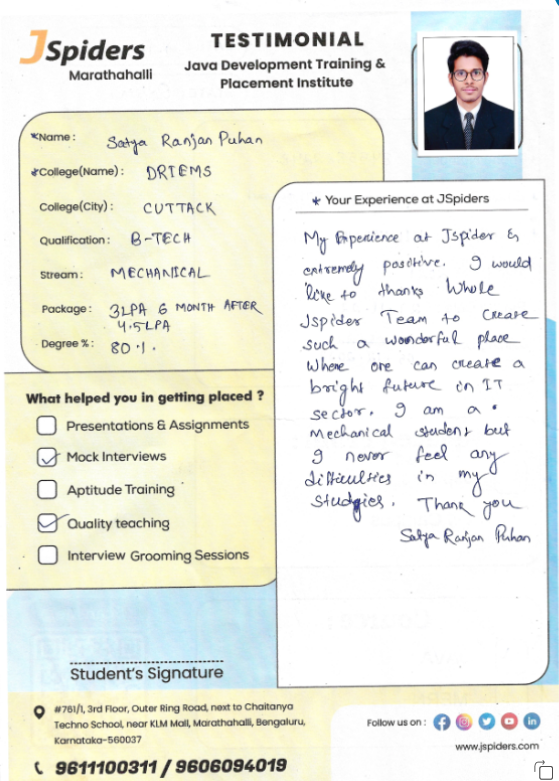 JSpiders
Marathahalli
TESTIMONIAL
Java Development Training &
Placement Institute
*Name : Satya Ranjan Puhan
*College(Name) : DRIEMS
College(City) : CUTTACK
Qualification : B-TECH
Stream : MECHANICAL
Package : 3LPA 6 MONTH AFTER
4.5LPA
Degree % : 80 %.
What helped you in getting placed ?
Presentations & Assignments
Mock Interviews
Aptitude Training
Quality teaching
Interview Grooming Sessions
* Your Experience at JSpiders
My Experience at Jspider is
extremely positive. I would
like to thanks Whole
Jspider Team to create
such a wonderful place
Where one can create a
bright future in IT
sector. I am a
Mechanical student but
I never feel any
difficulties in my
studies. Thank you
Satya Ranjan Puhan
Student's Signature
#761/1, 3rd Floor, Outer Ring Road, next to Chaitanya
Techno School, near KLM Mall, Marathahalli, Bengaluru,
Karnataka-560037
9611100311 / 9606094019
Follow us on :
www.jspiders.com